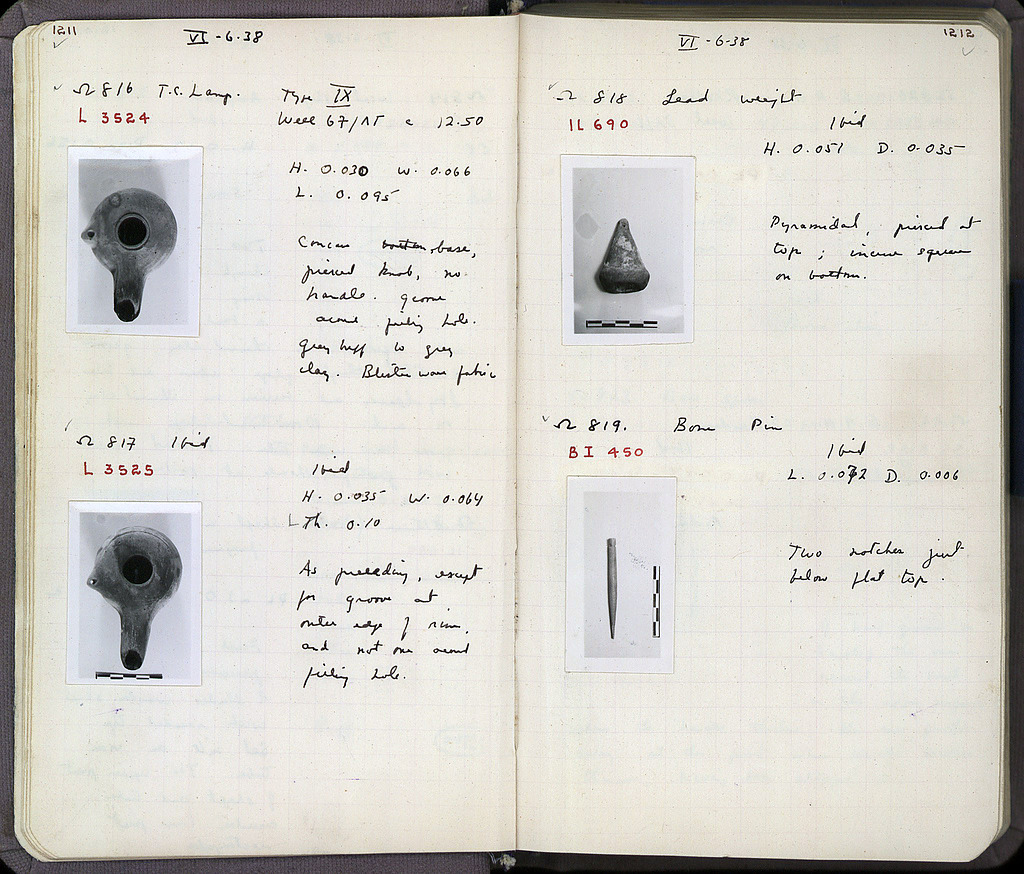 1211
VI - 6-38
Ω 816 T.C. Lamp. Type IX
L 3524
Well 67/ΛΓ c 12.50
H. 0.030 W. 0.066
L. 0.095
Concave bottom base,
pierced knob, no
handle. groove
around filling hole.
Grey buff to grey
clay. Blister ware fabric
Ω 817 Ibid
L 3525
Ibid
H. 0.035 W. 0.064
L Th. 0.10
As preceding, except
for groove at
outer edge of rim,
and not one around
filling hole.
1212
VI - 6-38
Ω 818 Lead weight
IL 690
Ibid
H. 0.051 D. 0.035
Pyramidal, pierced at
top; incuse square
on bottom.
Ω 819. Bone Pin
BI 450
Ibid
L. 0.072 D. 0.006
Two notches just
below flat top.